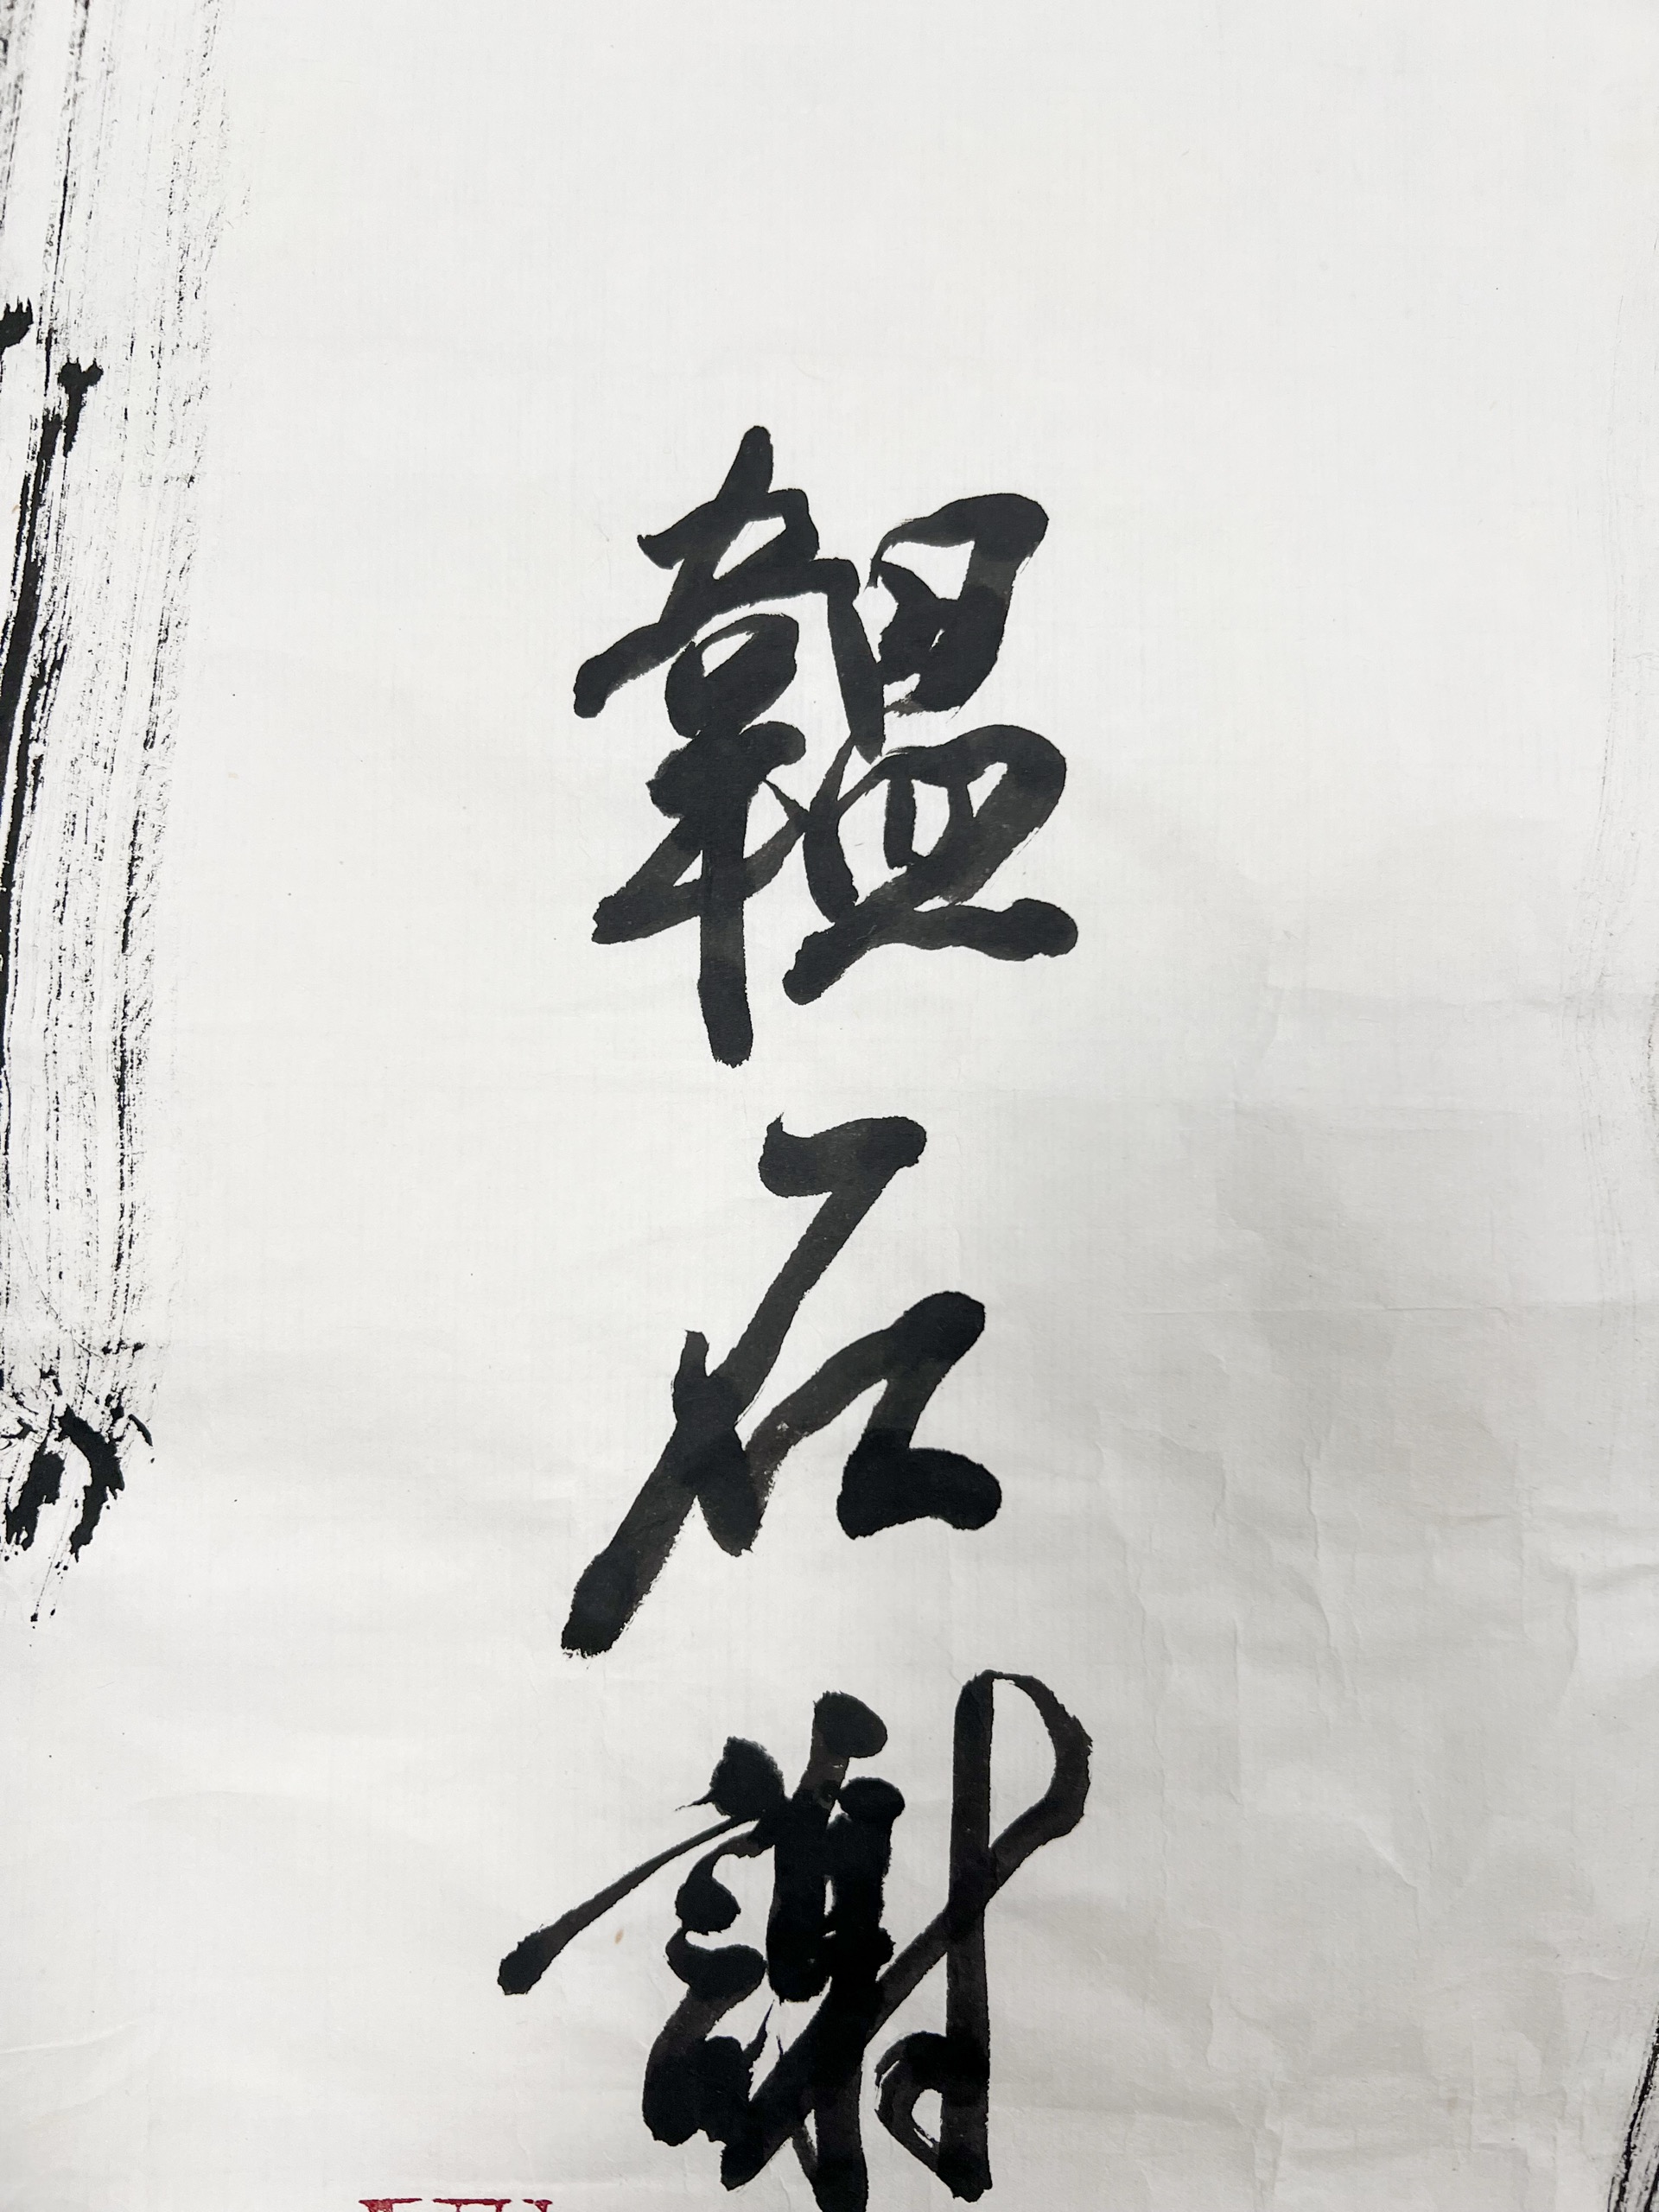 韞石謝